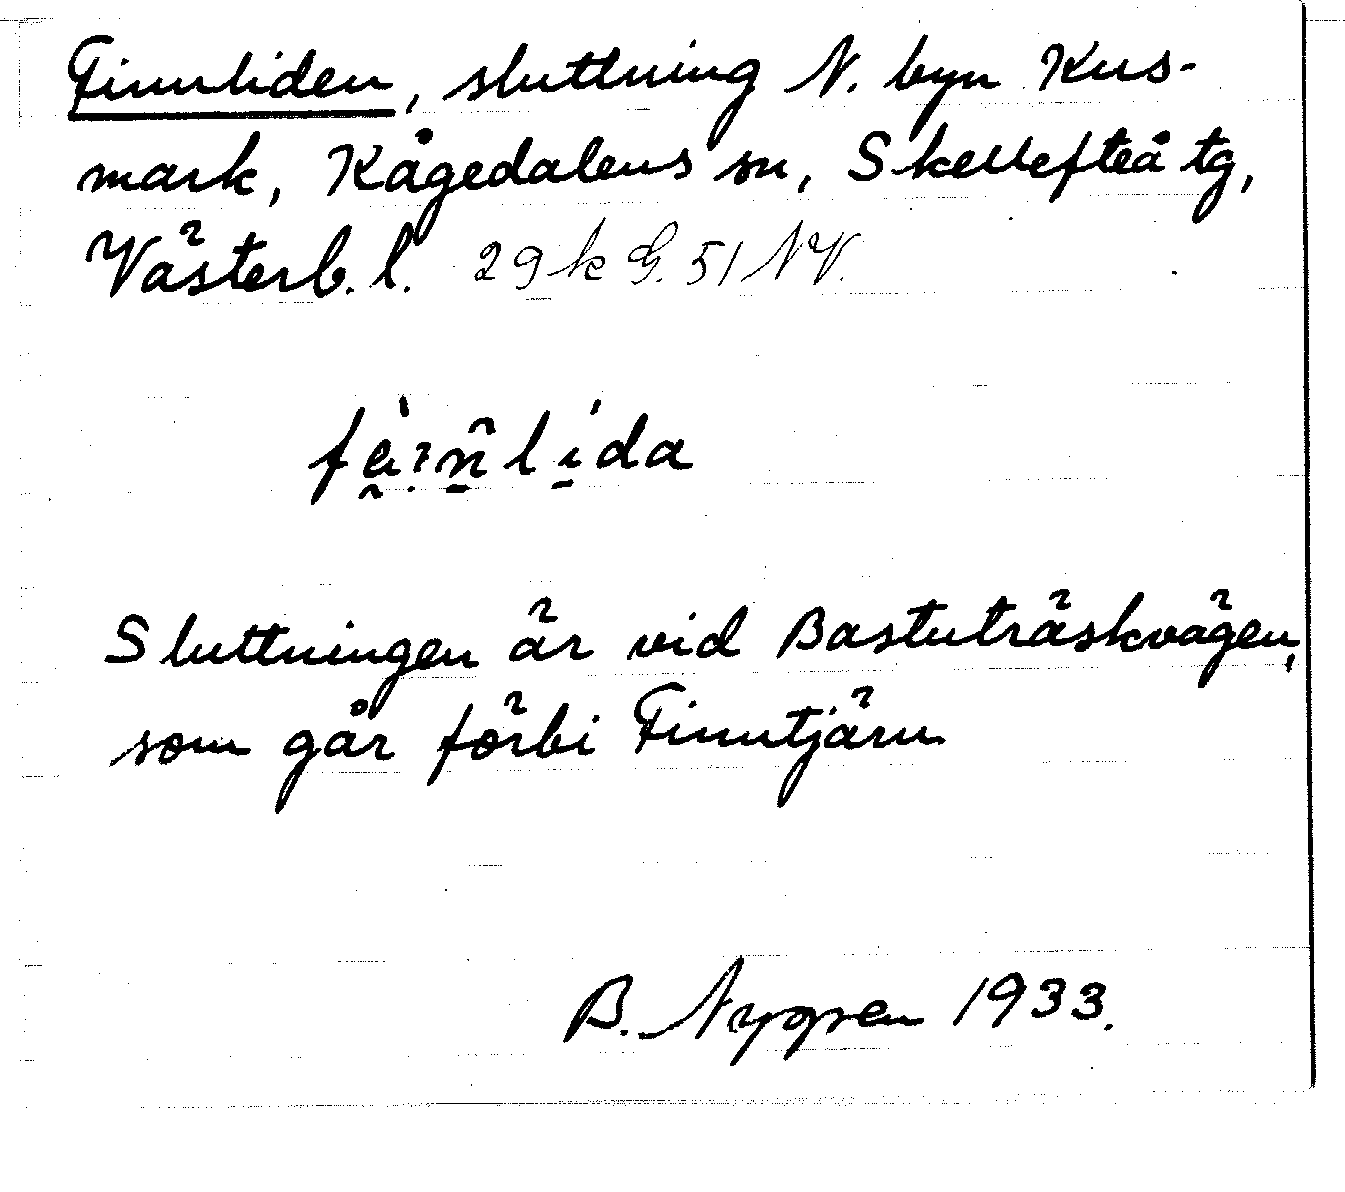 Finnliden, sluttning N. byn Kus-
mark, Kågedalens sn, Skellefteå tg,
Västerb. l. 29 k G. 51 NV.
Sluttningen är vid Bastuträskvägen,
som går förbi Finntjärn
B. Nygren 1933.